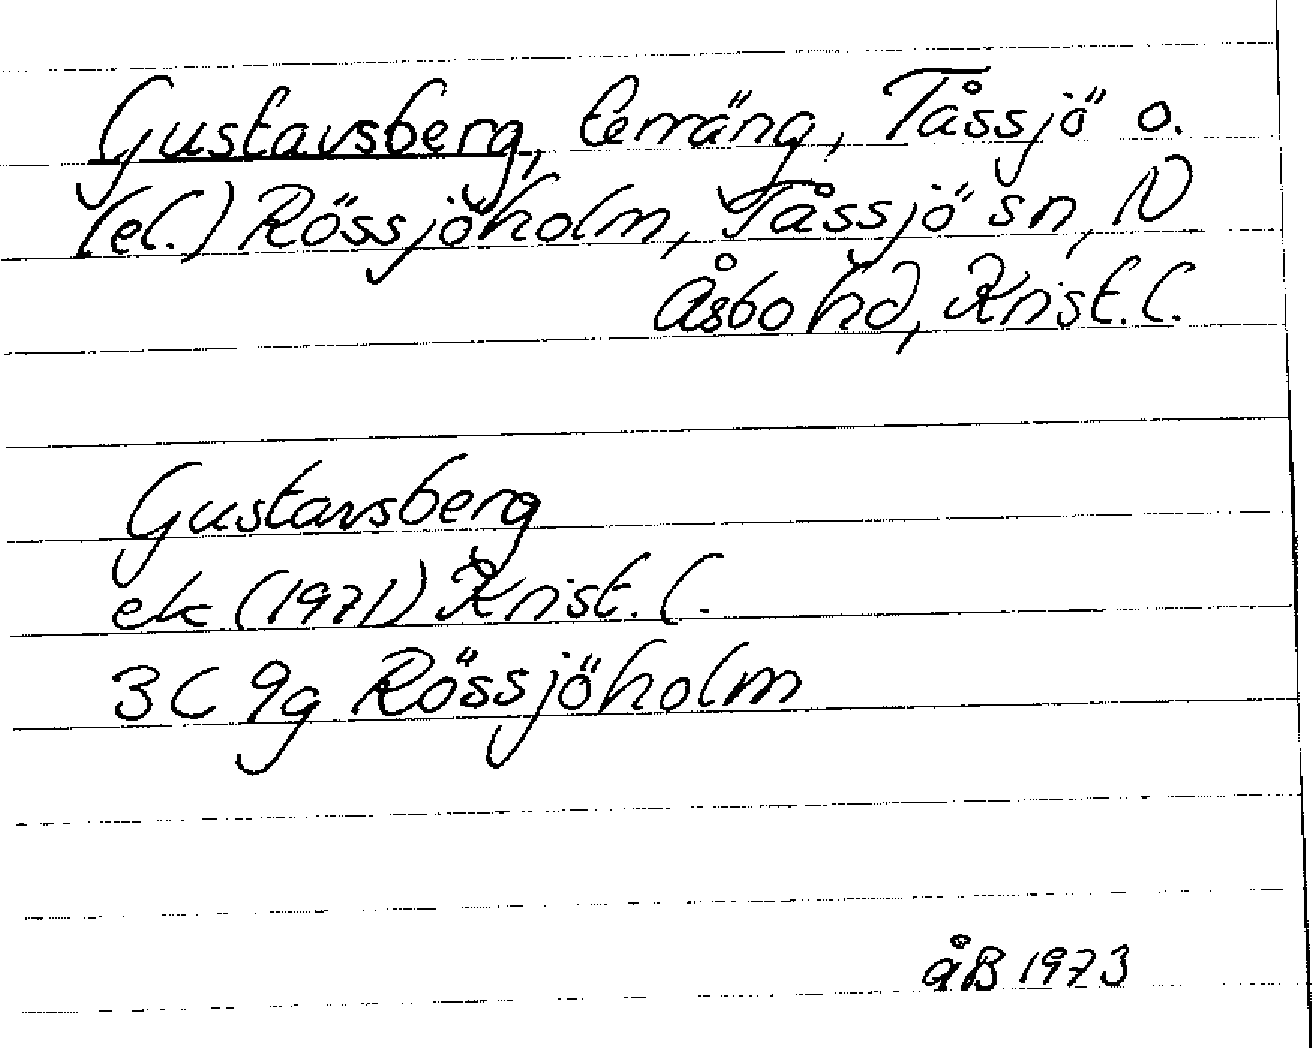 Gustavsberg, terräng, Tåssjö o.
(el.) Rössjöholm, Tåssjö sn, N
Åsbo hd, Krist. l.
Gustavsberg
ek (1971) Krist. l.
3C 9g Rössjöholm
åB 1973